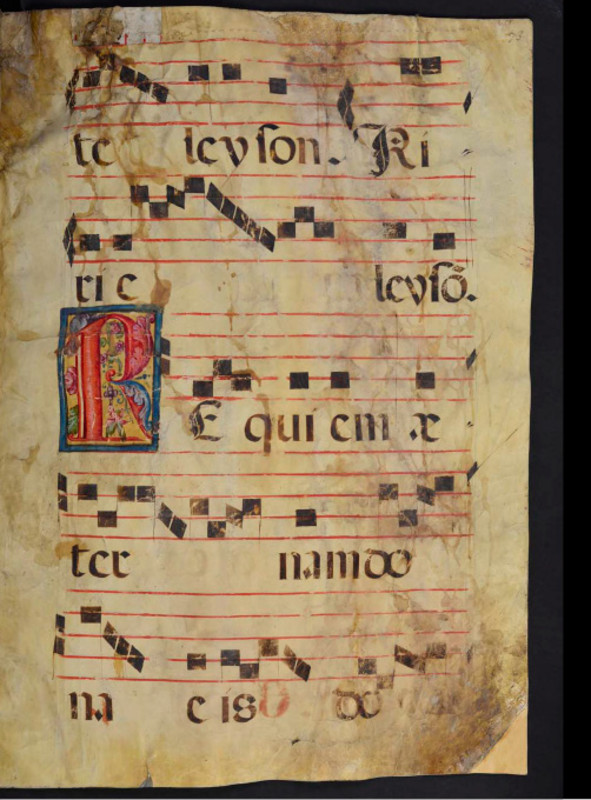 te leyson. Ki
rie leysō.
RE qui em æ
ter nam do
na e is do